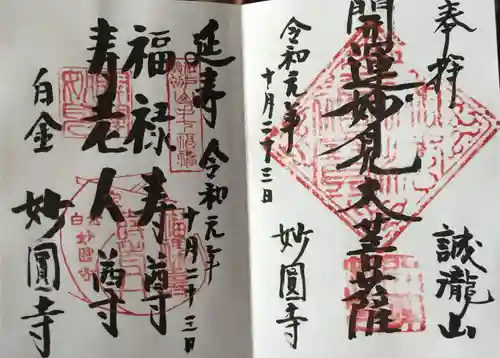 奉拝
誠瀧山
開運妙見大菩薩
令和元年
十月二十三日
妙圓寺
延寿
令和元年
十月二十三日
福禄寿尊
寿老人尊
白金
妙圓寺
白金
妙圓寺